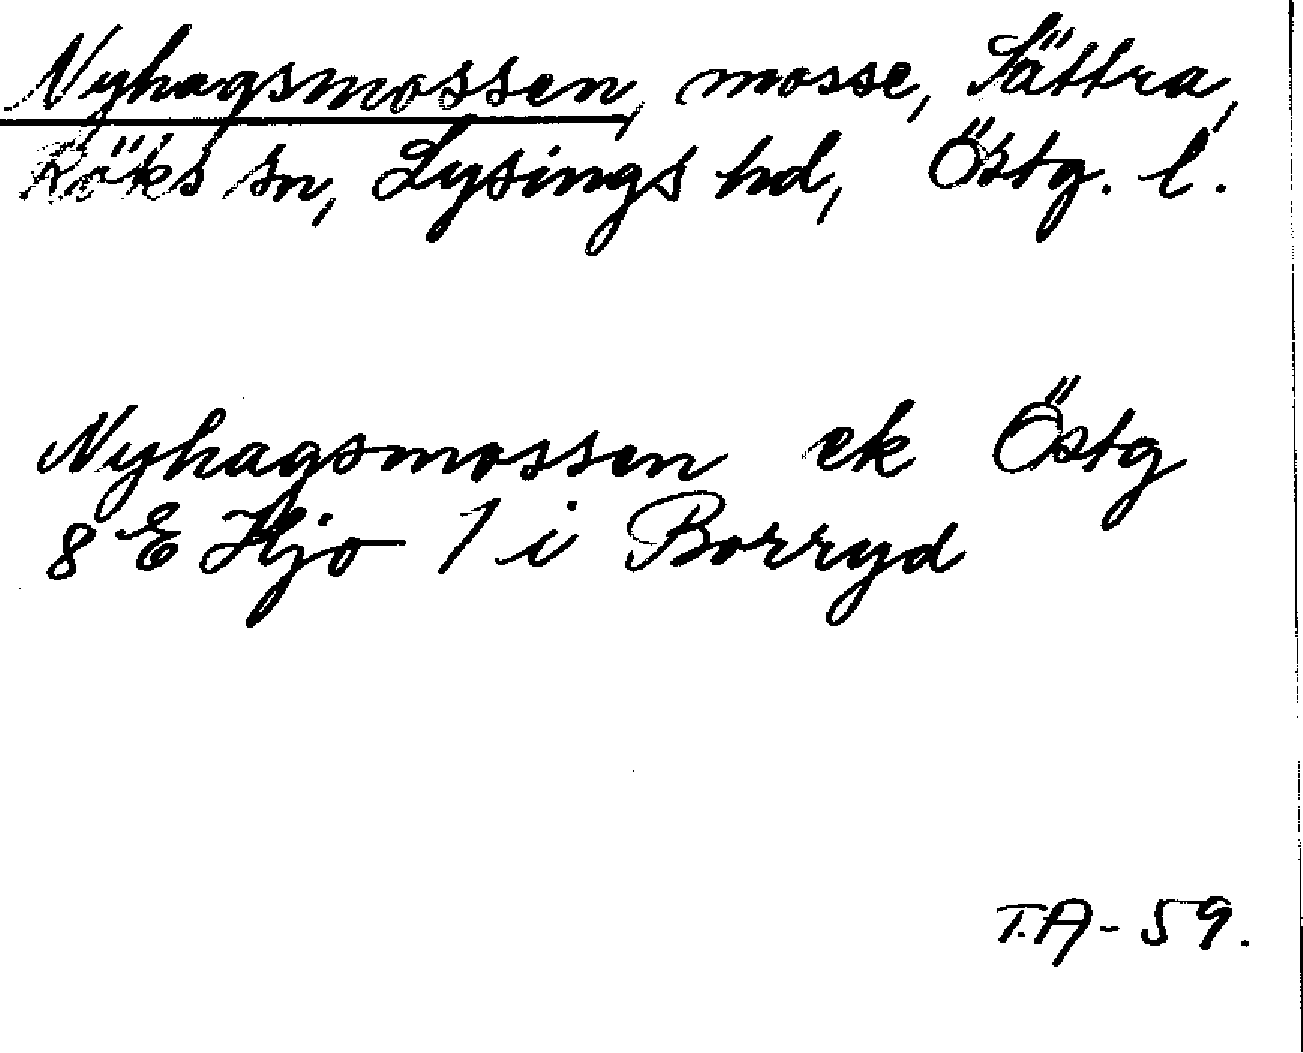 Nyhagsmossen, mosse, Sättra,
Röks sn, Lysings hd, Östg. l.
Nyhagsmossen ek Östg
8 E Hjo 1 i Borryd
T.A-59.